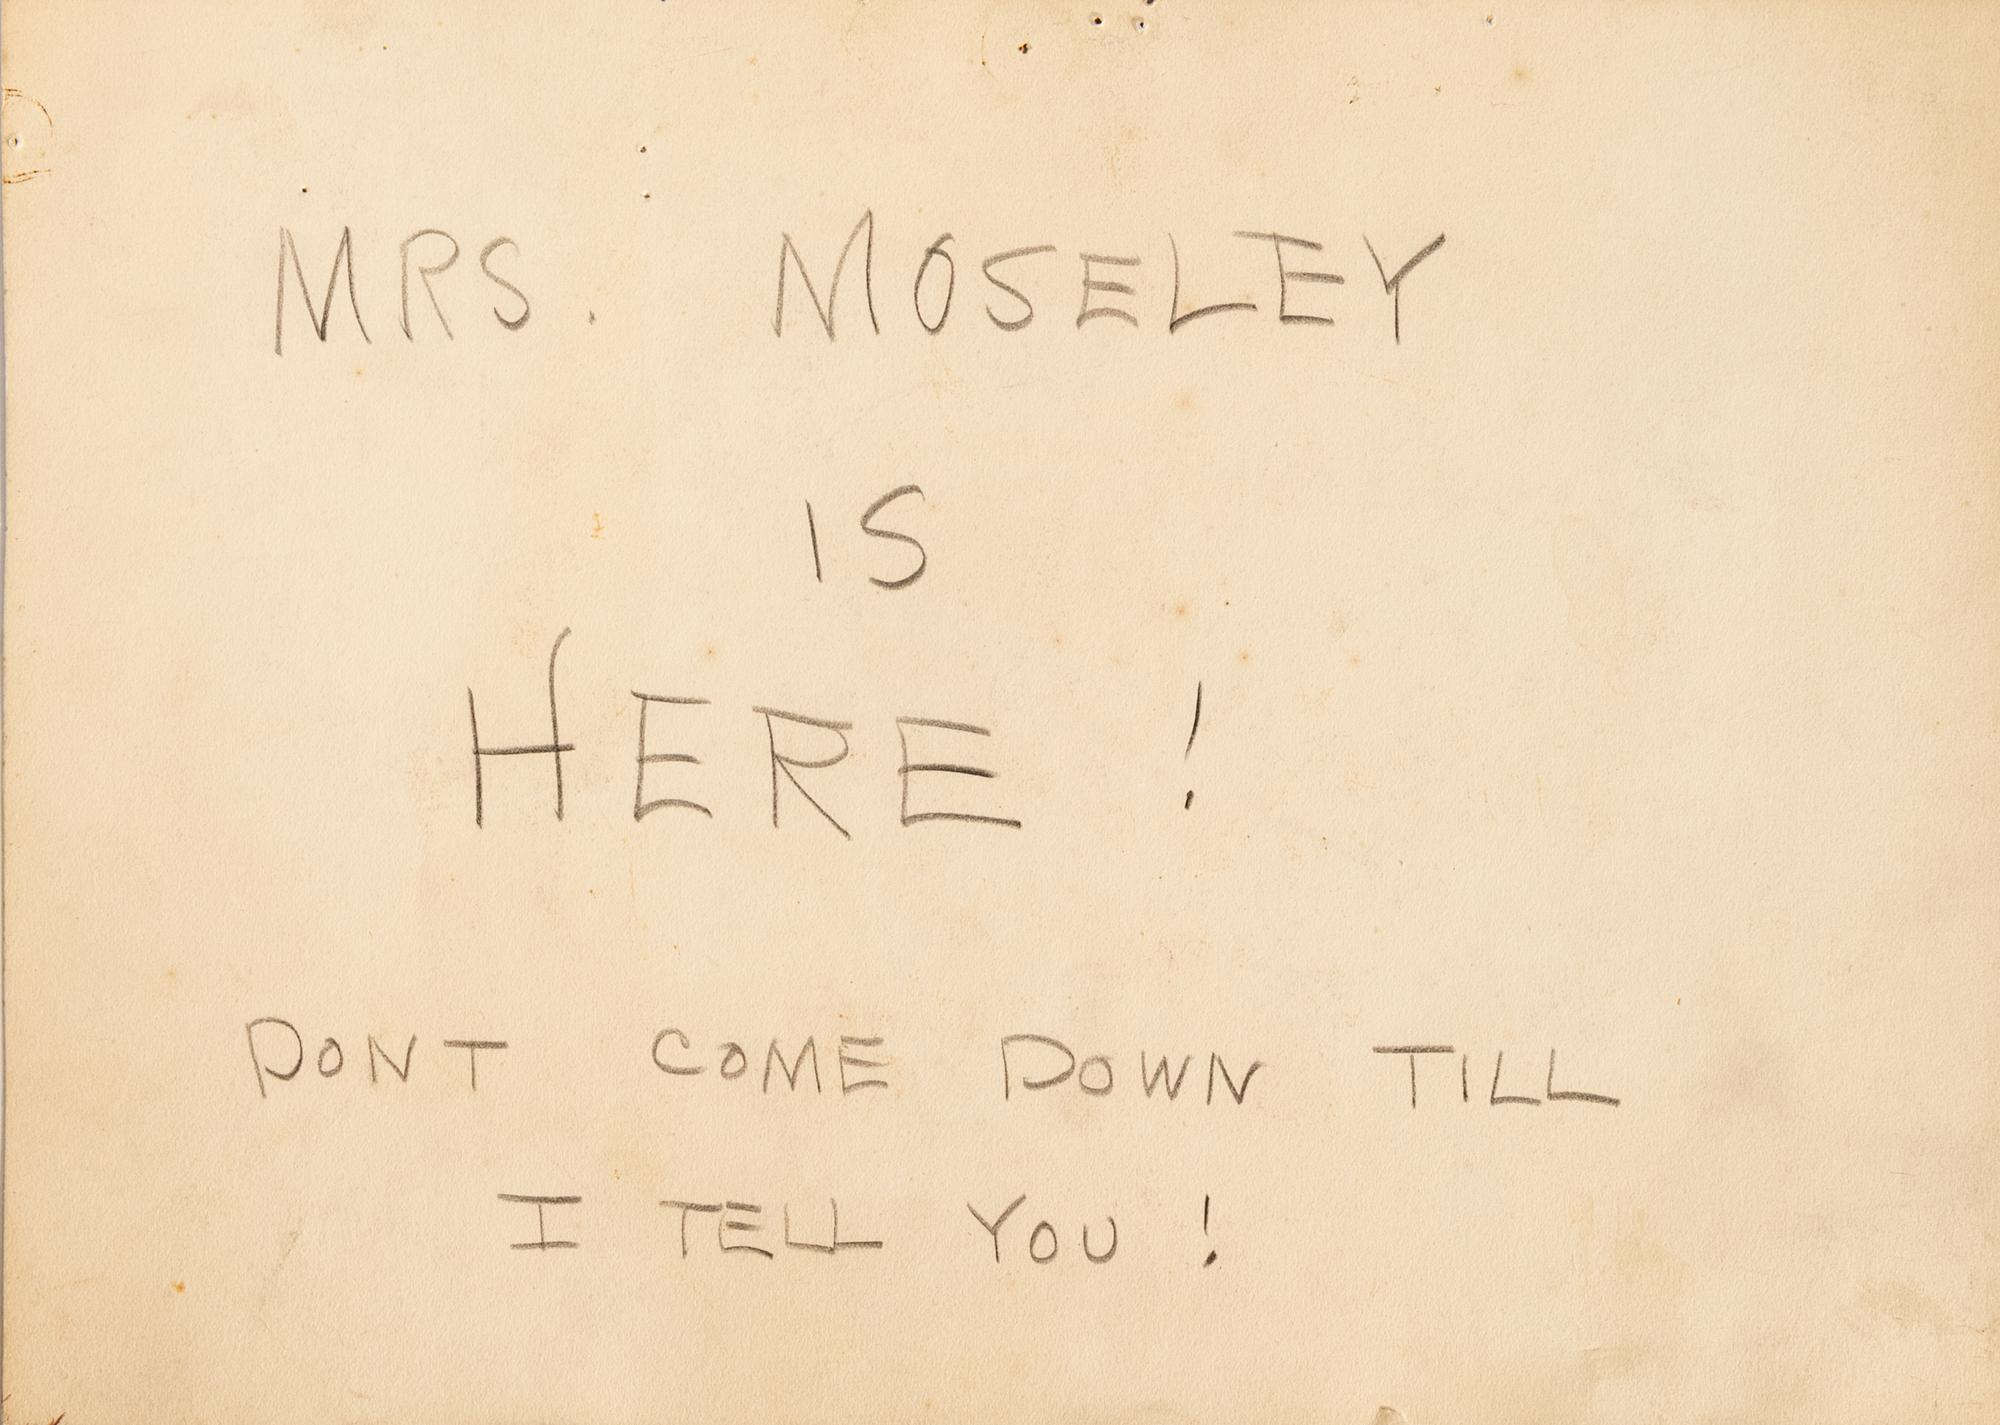 MRS. MOSELEY
IS
HERE !
DONT COME DOWN TILL
I TELL YOU !